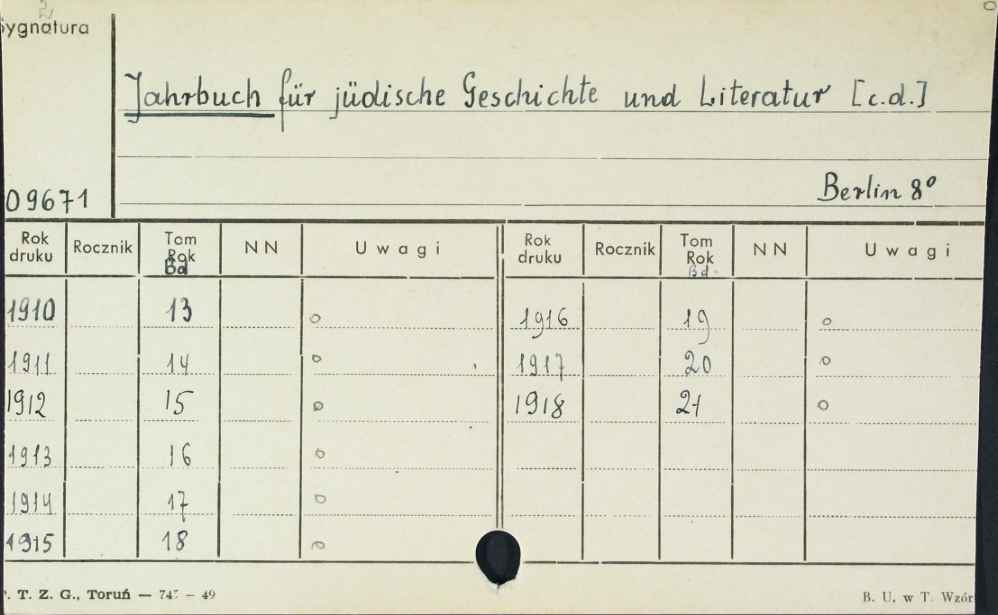 Sygnatura
Jahrbuch für jüdische Geschichte und Literatur [c.d.]
Berlin 8°
09671
Rok druku Rocznik Tom Rok Bd NN Uwagi Rok druku Rocznik Tom Rok Bd. NN Uwagi
1910 13 o 1916 19 o
1911 14 o 1917 20 o
1912 15 o 1918 21 o
1913 16 o
1914 17 o
1915 18 o
T. Z. G., Toruń — 49
B. U. w T. Wzór